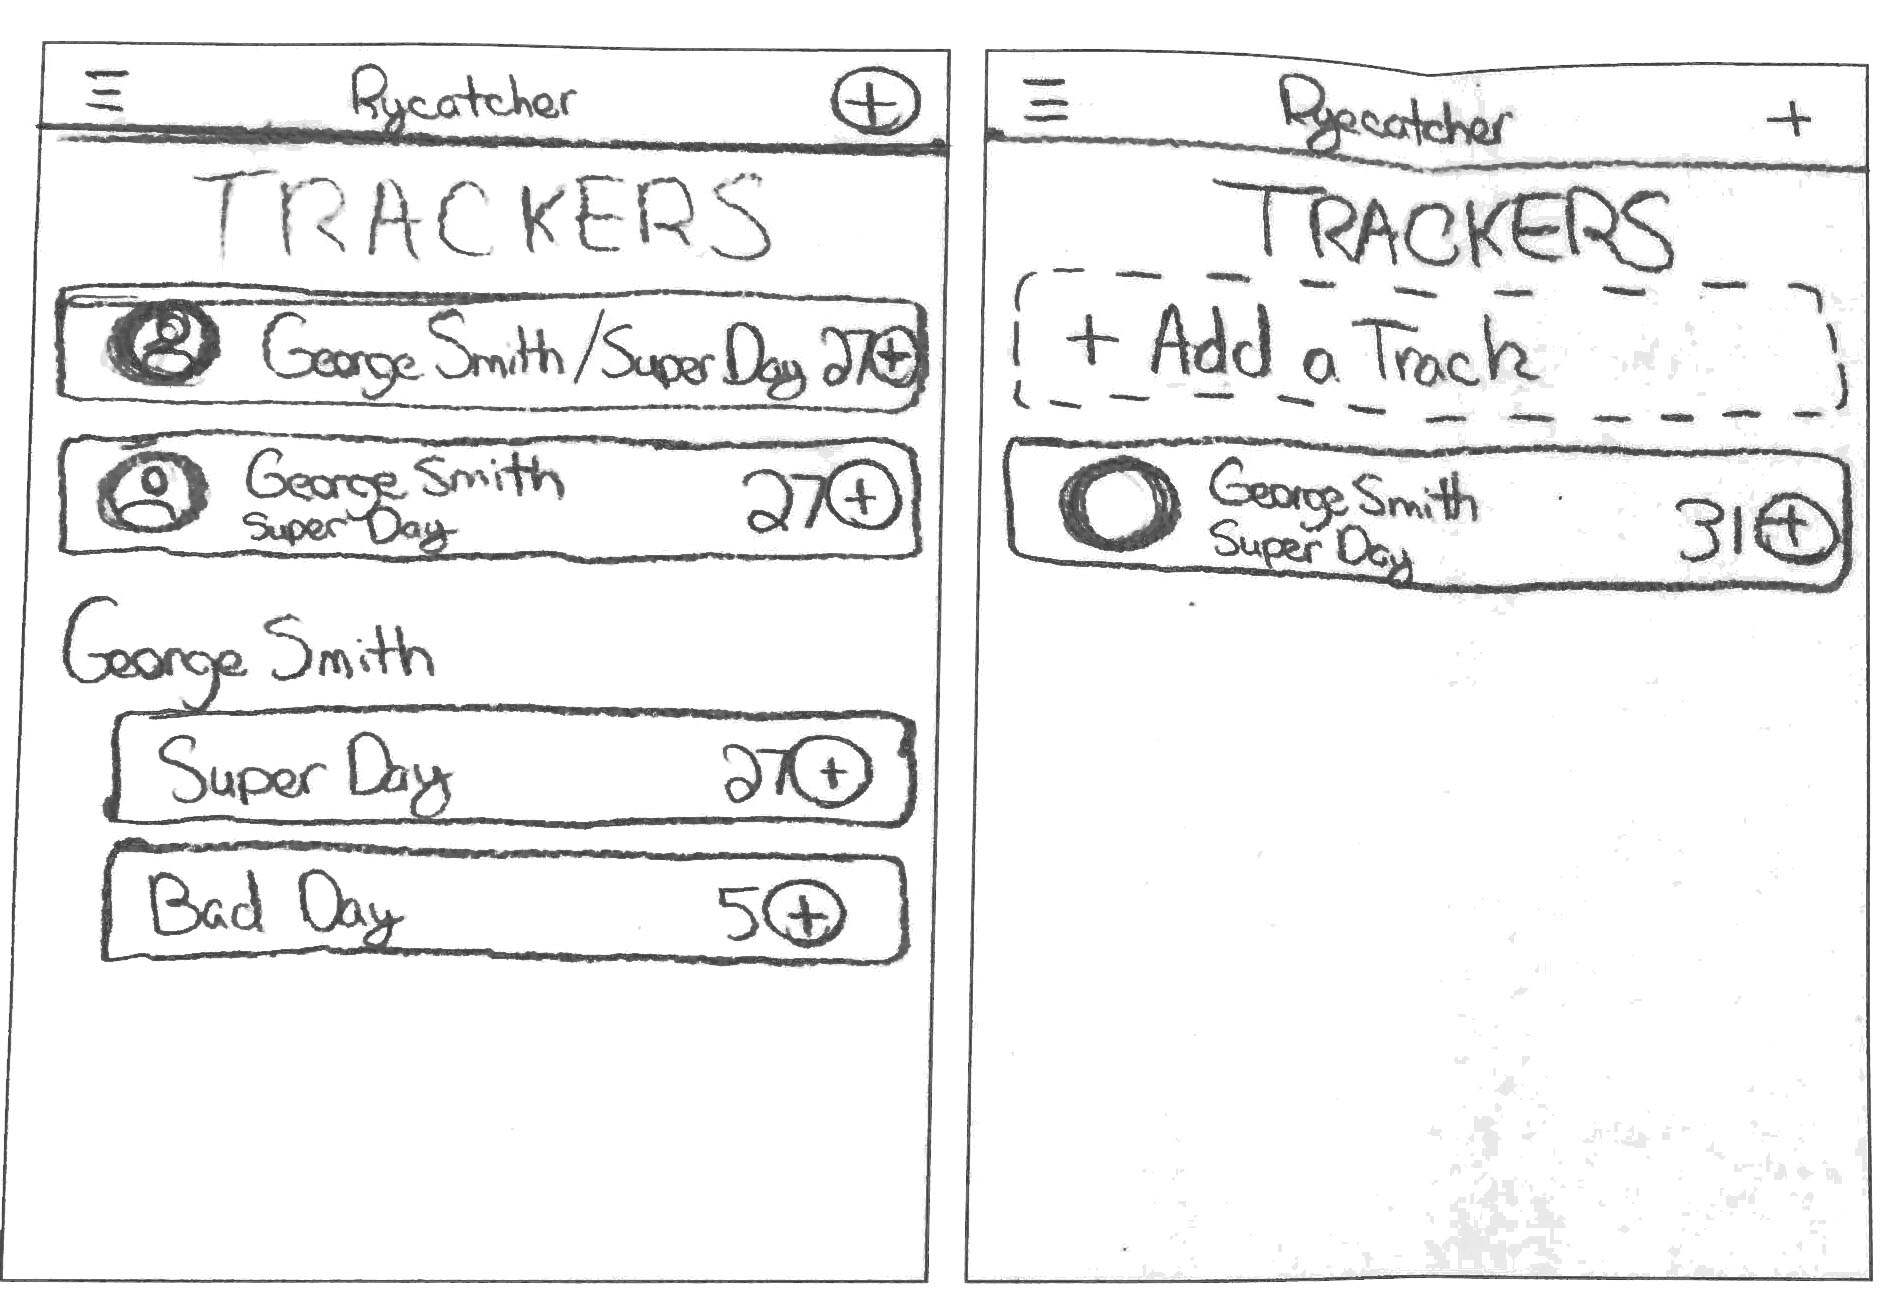 Rycatcher +
TRACKERS
George Smith / Super Day 27 +
George Smith
Super Day
27 +
George Smith
Super Day 27 +
Bad Day 5 +
Ryecatcher +
TRACKERS
+ Add a Track
George Smith
Super Day
31 +